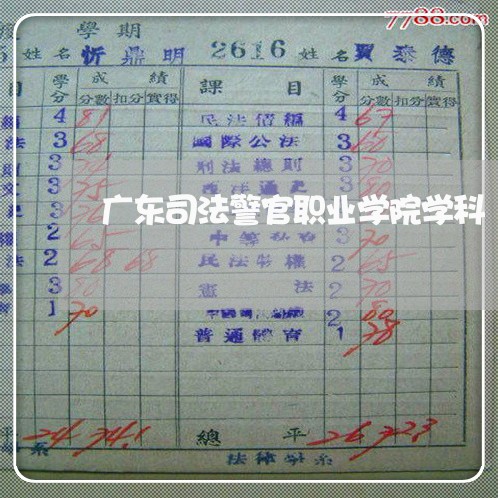 7788.com
學期
姓名 忻鼎明 2616 姓名 賈泰德
目 學分 成績 課目 學分 成績
分數 扣分 實得 分數 扣分 實得
4 81 民法債編 4 67
法 3 68 國際公法 3 60
3 刑法總則 3 70
3 75 3 80
广东司法警官职业学院学科
2 65 3 70
法 2 68 68 民法物權 2 65
3 80 憲法 2 70
1 70 2 80
普通體育 1 78
平 24 74.1 總平 26 72.3
系 法律學系